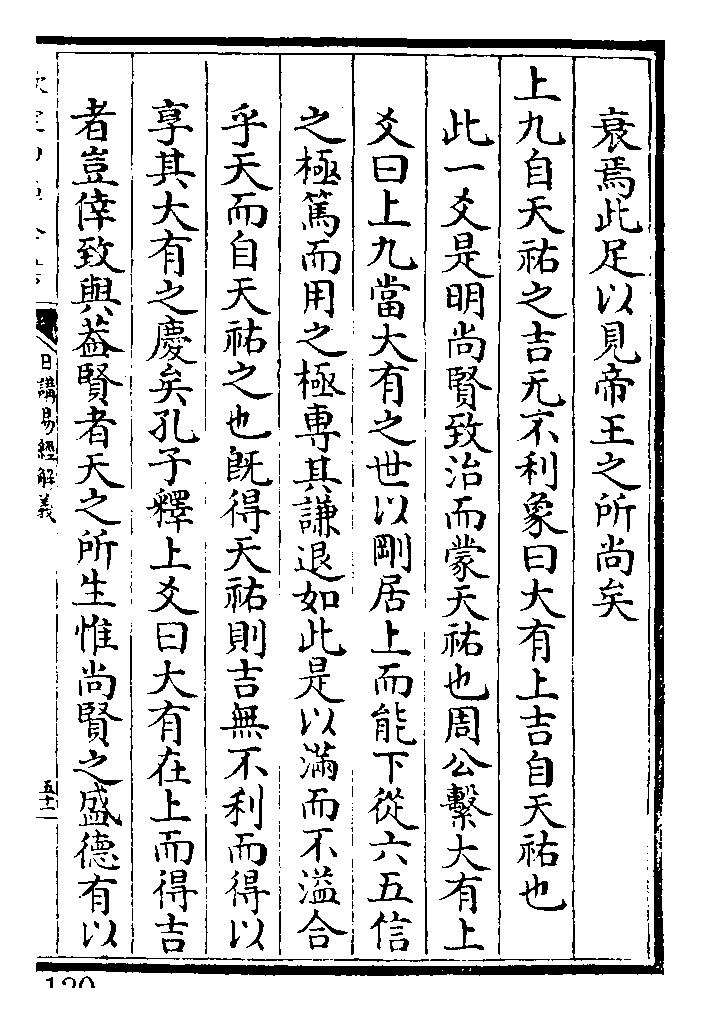 衰焉此足以見帝王之所尚矣
上九自天祐之吉无不利象曰大有上吉自天祐也
此一爻是明尚賢致治而蒙天祐也周公繫大有上
爻曰上九當大有之世以剛居上而能下從六五信
之極篤而用之極專其謙退如此是以滿而不溢合
乎天而自天祐之也既得天祐則吉無不利而得以
享其大有之慶矣孔子釋上爻曰大有在上而得吉
者豈倖致與葢賢者天之所生惟尚賢之盛德有以
日講易經解義
120